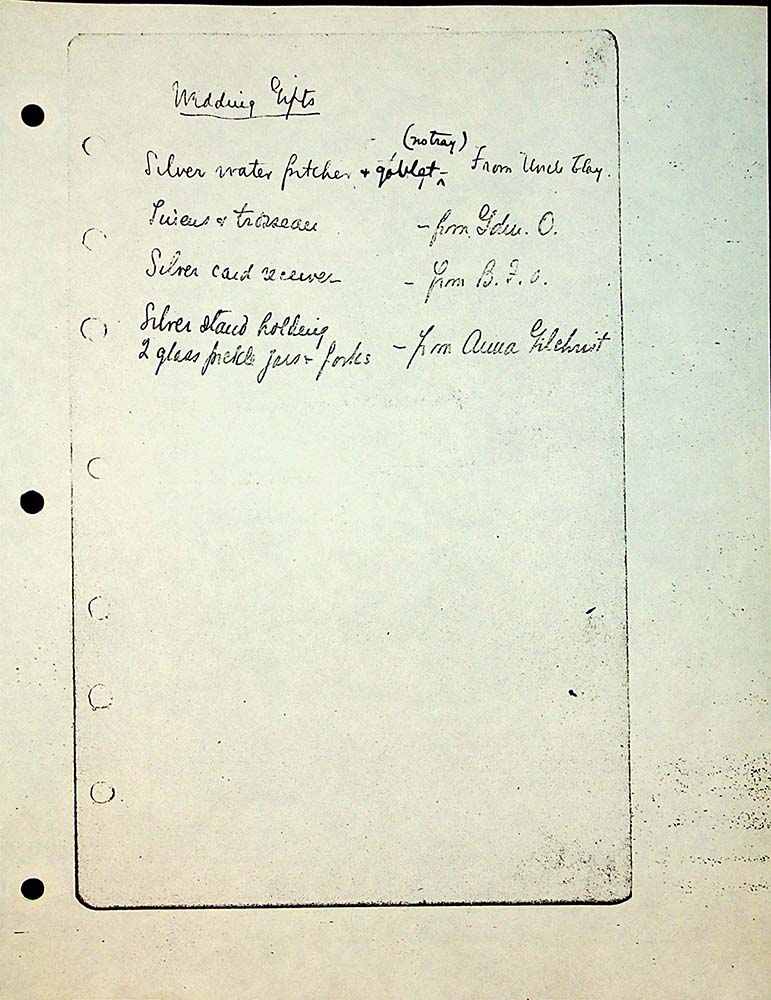 Wedding Gifts
(no tray)
Silver water pitcher + goblet - ^ From Uncle Clay.
Linens & trosseau - from Edw. O.
Silver card receiver - from B. F. O.
Silver stand holding
2 glass pickle jars - forks - from Anna Gilchrist